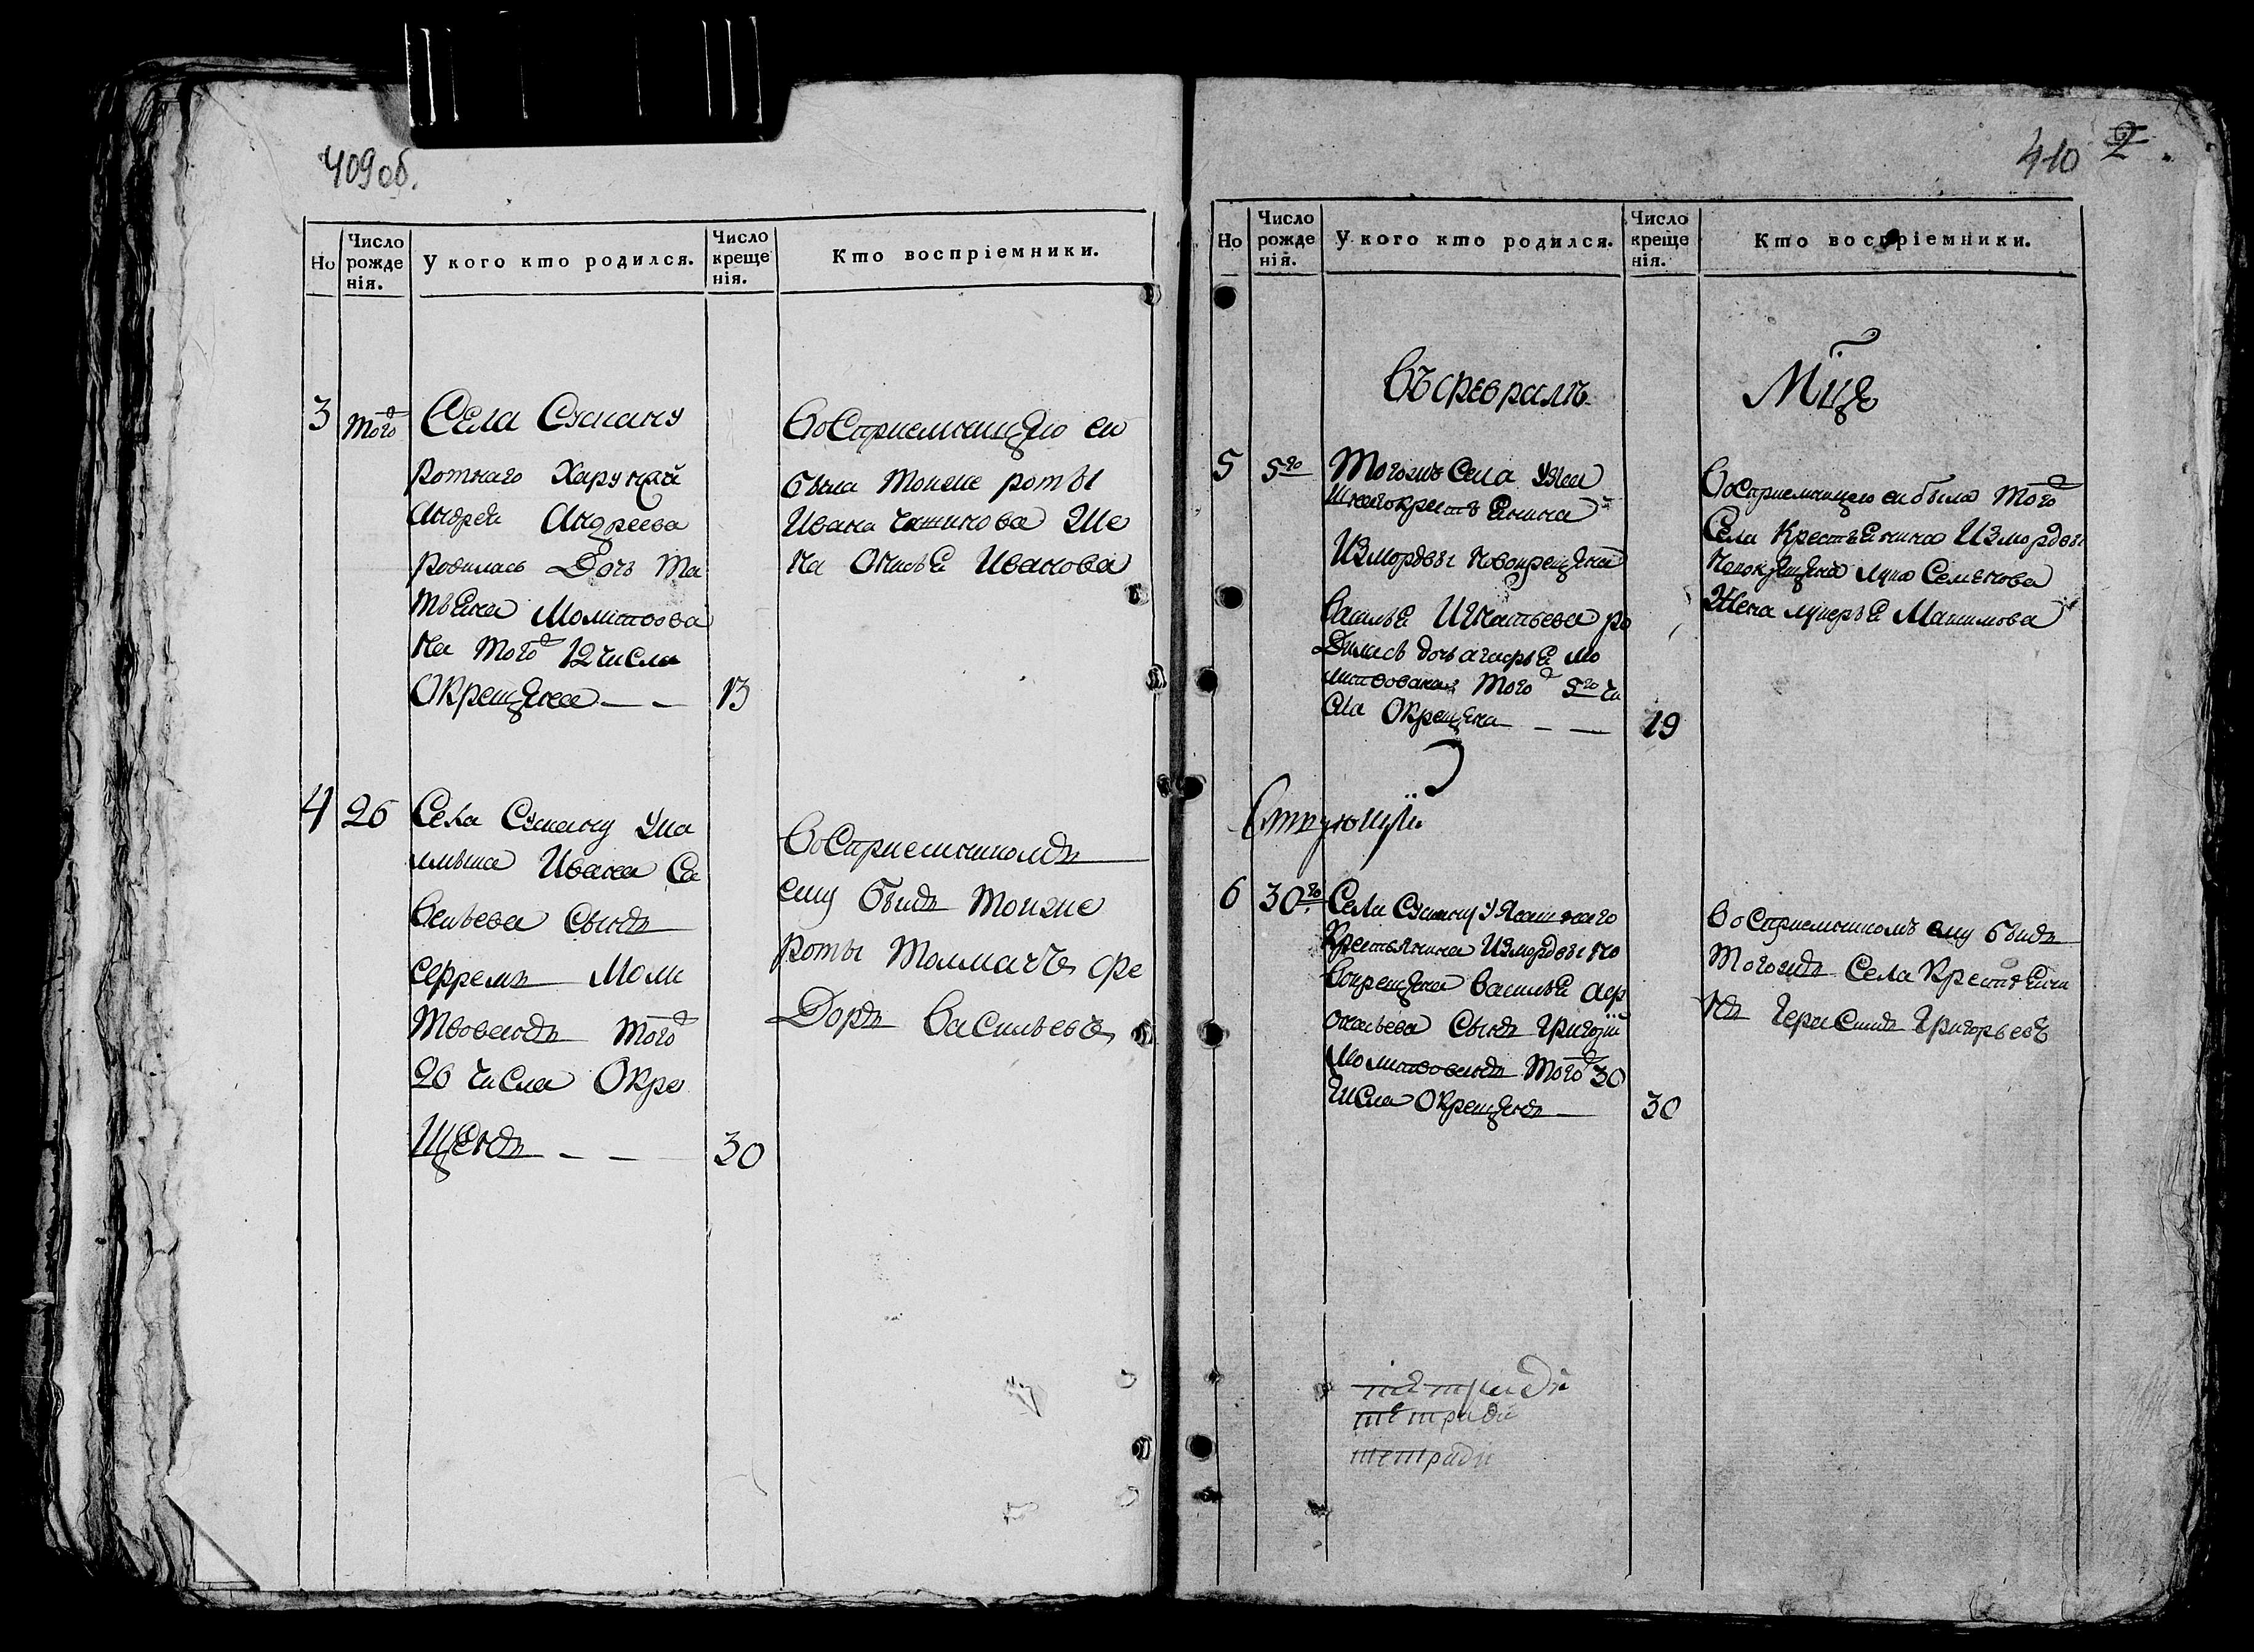 409 об.
Но
Число рожде нія.
У кого кто родился.
Число креще нія.
Кто воспріемники.
3
того
Села Сускану
ротнаго Харунжай
Андрея Андреева
родилась Дочь Та
тьяна Молитвова
на того 12 числа
Окрещена — —
13
Восприемницею ей
была тоиже роты
Ивана Же
на Ивановa
4
26
Села Сускану
Ивана Са
вельева Сынъ
Ефремъ Моли
твовонъ того
26 числа Окре
щенъ — —
30
Восприемникомъ
ему былъ тоиже
роты Толмачь Фе
доръ Васильевъ
410 2
Но
Число рожде нія.
У кого кто родился.
Число креще нія.
Кто воспріемники.
въ февралѣ
Мце
5
5го
Тогожъ Села Уяса
шнаго крестьенина
Измордвы новокрещена
Василья Игнатьева ро
дилась дочь агафья мо
литвована того 5го чи
сла Окрещена — —
19
Восприемницею ей была того
Села Крестьенина Измордвы
новокрещена Семенова
Жена лукерья Макимова
6
30го
Села Сускану Уясашнаго
Крестьянина Измордвы но
вокрещена Василья Аф
онасьева Сынъ Григорий
Молитвовонъ того 30
числа Окрещенъ
30
Восприемникомъ ему былъ
тогожъ Села Крестьени
нъ Герасимъ Григорьевъ
тетради
тетради
тетради